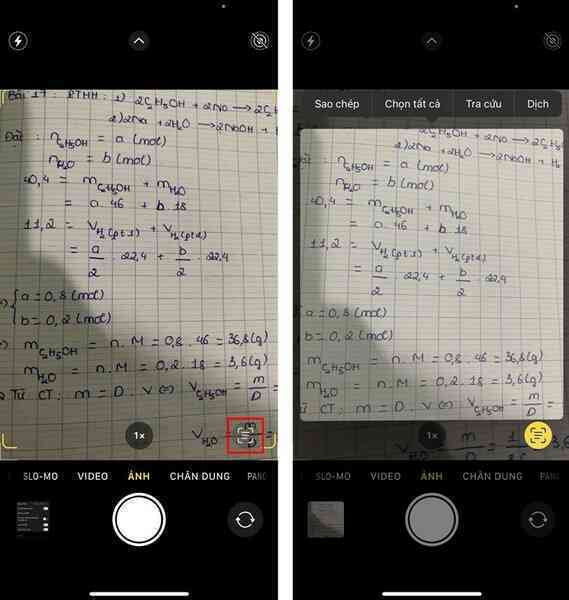 Bài 17: PTHH: 1) 2C₂H₅OH + 2Na → 2C₂H
2) 2Na + 2H₂O → 2NaOH + H
Đặt: nC₂H₅OH = a (mol)
nH₂O = b (mol)
40,4 = mC₂H₅OH + mH₂O
= a. 46 + b. 18
11,2 = VH₂(pt1) + VH₂(pt2)
= a/2 . 22,4 + b/2 . 22,4
{ a = 0,8 (mol)
b = 0,2 (mol)
mC₂H₅OH = n. M = 0,8. 46 = 36,8 (g)
mH₂O = n. M = 0,2. 18 = 3,6 (g)
Từ CT: m = D. V ⇔ VC₂H₅OH = m/D =
VH₂O = m/D =
1x
SLO-MO VIDEO ẢNH CHÂN DUNG PANO
Sao chép Chọn tất cả Tra cứu Dịch
2C₂H₅OH + 2Na → 2C₂H
2) 2Na + 2H₂O → 2NaOH + H₂
Đặt: nC₂H₅OH = a (mol)
nH₂O = b (mol)
40,4 = mC₂H₅OH + mH₂O
= a. 46 + b. 18
11,2 = VH₂(pt1) + VH₂(pt2)
= a/2 . 22,4 + b/2 . 22,4
a = 0,8 (mol)
b = 0,2 (mol)
mC₂H₅OH = n. M = 0,8. 46 = 36,8 (g)
mH₂O = n. M = 0,2. 18 = 3,6 (g)
Từ CT: m = D. V ⇔ VC₂H₅OH = m/D =
VH₂O = m/D = 3,6
1x
SLO-MO VIDEO ẢNH CHÂN DUNG PANO